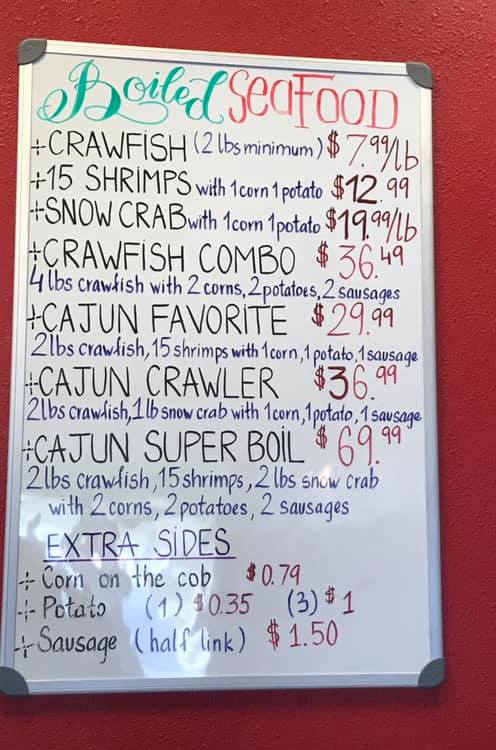 Boiled SeaFOOD
+CRAWFISH (2 lbs minimum) $7.99/lb
+15 SHRIMPS with 1corn 1potato $12.99
+SNOW CRAB with 1corn 1potato $19.99/lb
+CRAWFISH COMBO $36.49
4 lbs crawfish with 2 corns, 2potatoes, 2 sausages
+CAJUN FAVORITE $29.99
2lbs crawfish, 15 shrimps with 1corn, 1 potato, 1 sausage
+CAJUN CRAWLER $36.99
2lbs crawfish, 1 lb snow crab with 1corn, 1potato, 1 sausage
+CAJUN SUPER BOIL $69.99
2lbs crawfish, 15 shrimps, 2 lbs snow crab
with 2 corns, 2 potatoes, 2 sausages
EXTRA SIDES
+ Corn on the cob $0.79
+ Potato (1) $0.35 (3) $1
+ Sausage (half link) $1.50